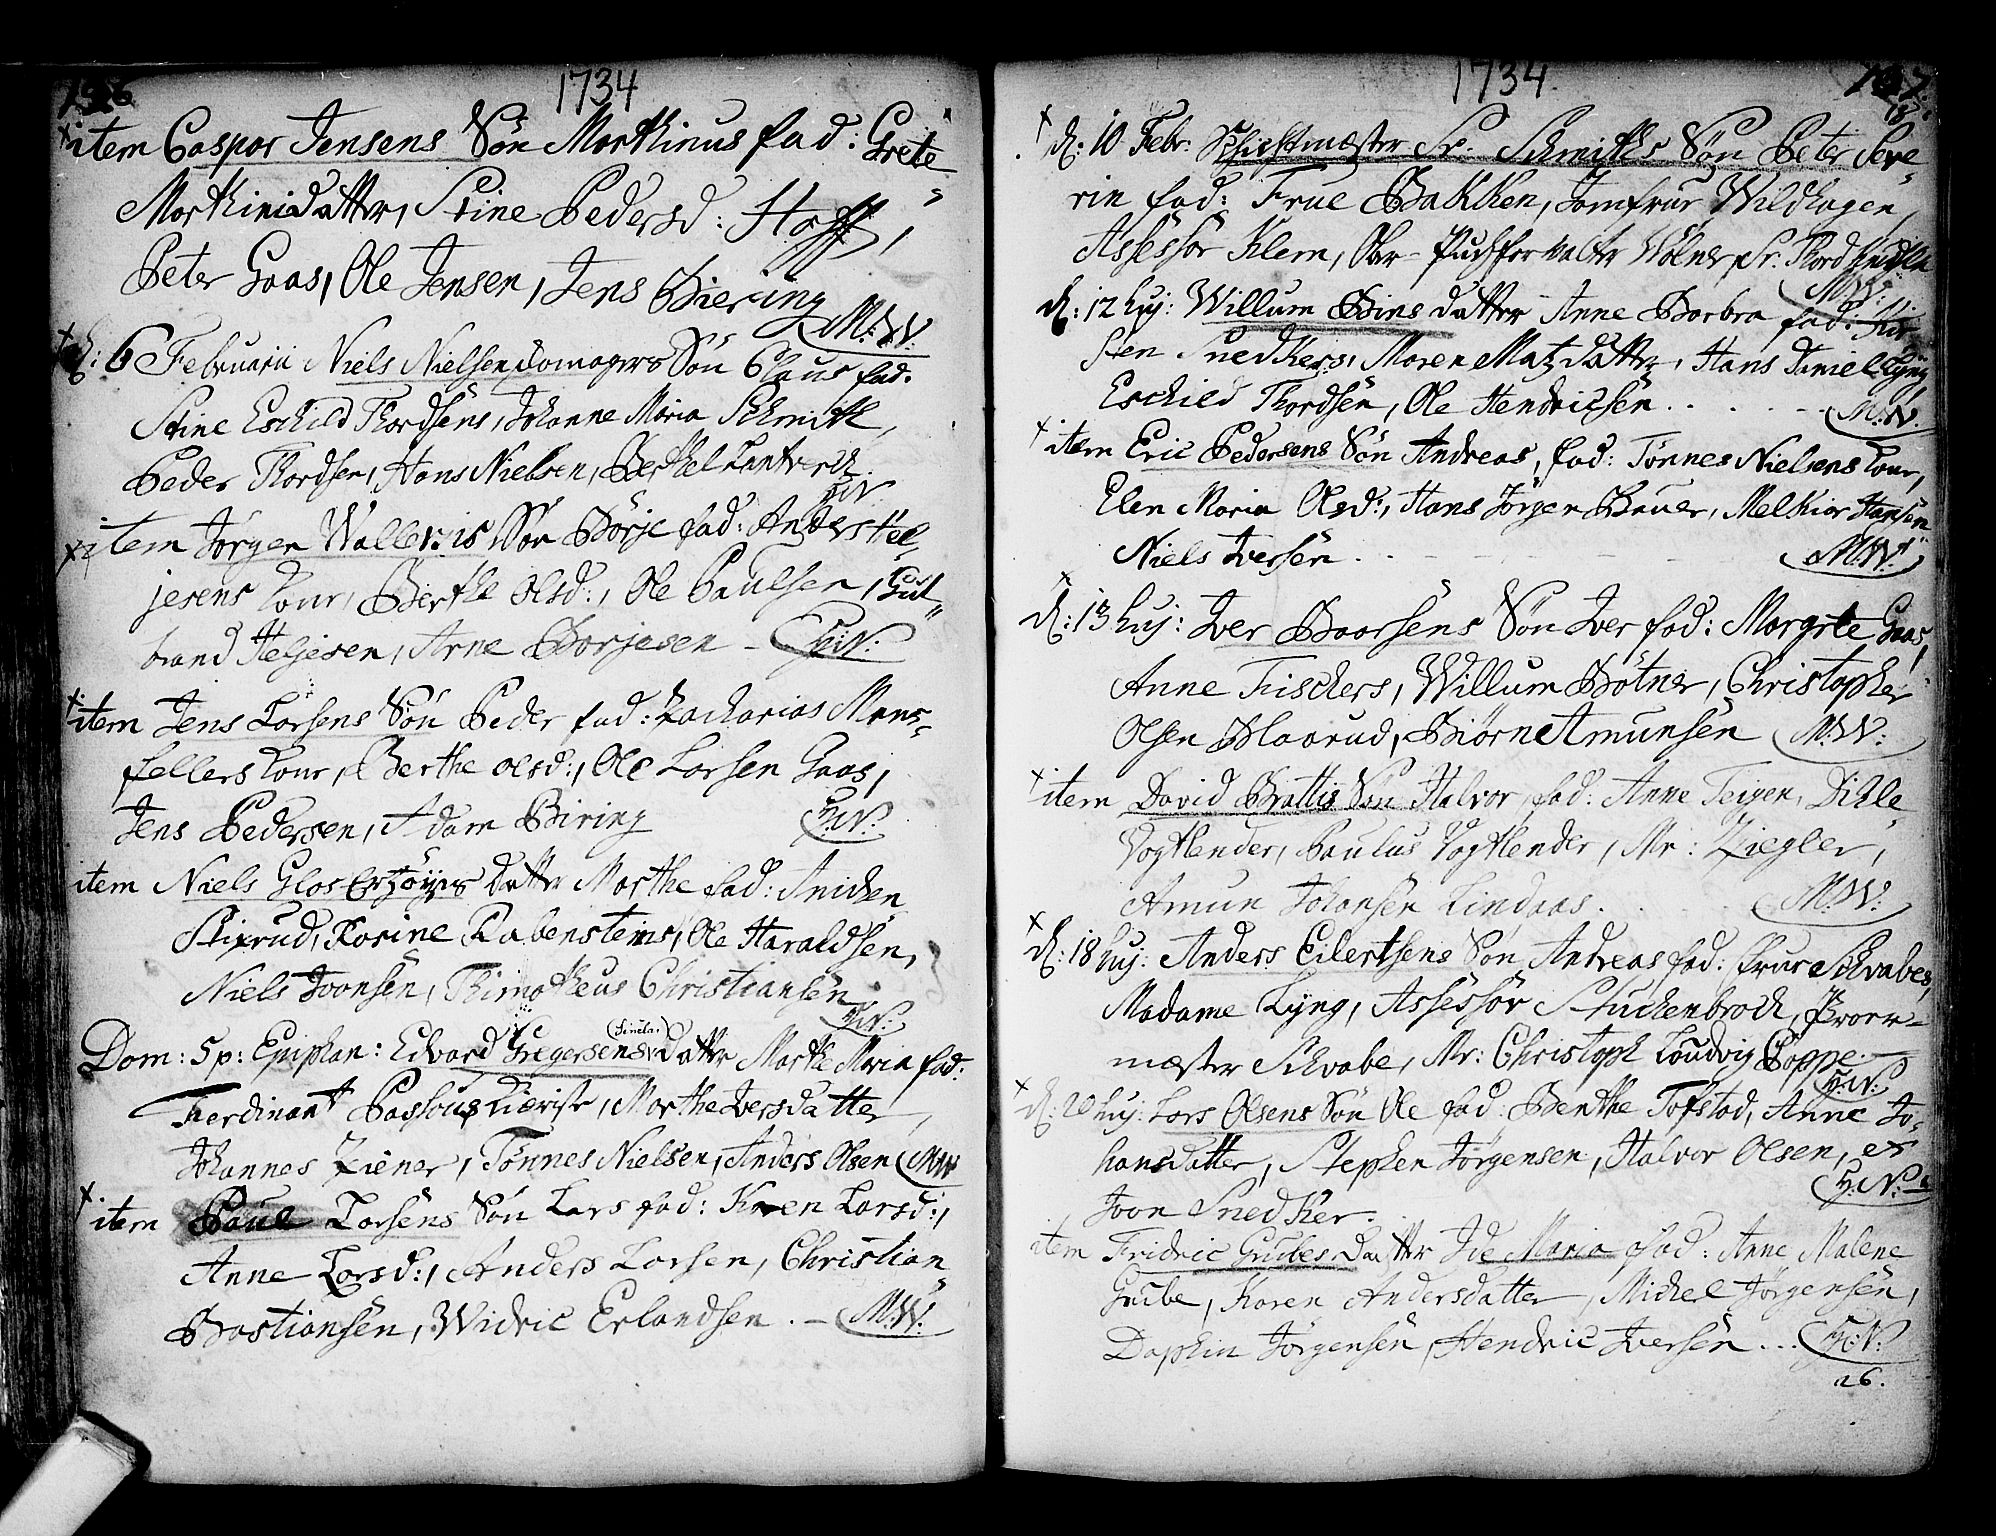 1734
item Caspar Jensens Søn Marthinus fad: Grete
Marthinidatter, Stine Pedersd: Hoff,
Peter Gaas, Ole Jensen, Jens Biering
M:W:
d: 6 Februarii Niels Nielsen Søn Claus fad.
Stine Eschild Thordsens, Johanne Maria Schmith,
Peder Thordsen, Hans Nielsen, Berthel
H:N
item Jørgen Søn Børje fad: Anders Hel-
jesens Kone, Berthe Olsd:, Ole Paulsen, Gul-
brand Heljesen, Arne Borjesen - H:N:
item Jens Larsens Søn Peder fad: Zacharias Mans-
fellers Kone, Berthe Olsd:, Ole Larsen Gaas,
Jens Pedersen, Adam Biring H:N:
item Niels Datter Marthe fad: Anichen
Stixrud, Rosine Rabensteins, Ole Haraldsen,
Niels Joonsen, Thimotheus Christiansen
H:N:
Dom: 5 p: Epiphan: Edvard Gregersens Datter Marthe Maria fad:
Ferdinant Marthe Iversdatter,
Johannes Ziener, Tønnes Nielsen, Anders Olsen MW
item Paul Larsens Søn Lars fad: Karen Larsd:,
Anne Larsd:, Anders Larsen, Christian
Bastiansen, Widric Erlandsen. - M:W:
1734.
d: 10 Febr: Schichtmæster Sr. Schmiths Søn Peter Seve-
rin fad: Frue Bakken, Jomfrue Wildhagen,
Assessor Klem, Wølner, Sr: Thord
M:W:
d: 12 huj: Willum Bins datter Anne Barbra fad: Kir-
sten Snedkers, Maren Matzdatter, Hans Daniel Lyng,
Eschild Thordsen, Ole Hendrichsen . . . . - M:W.
item Eric Pedersens Søn Andreas, fad: Tønnes Nielsens Kone,
Elen Maria Olsd:, Hans Jørgen Bauer, Melkior Hansen
Niels Iversen . . M:W:
d: 13 huj: Iver Baarsens Søn Iver fad: Margrete Gaas,
Anne Fischers, Willum Bøtner, Christopher
Olsen Blaarud, Biørn Amunsen M:W:
item David Brattis Søn Halvor, fad: Anne Teigen, Dihle
Vogtlender, Paulus Vogtlender, Mr: Ziegler,
Amun Johansen Lindaas. M:W:
d: 18 huj: Anders Eilertsens Søn Andreas fad: Frue Schvabes,
Madame Lyng, Assessor Stuckenbrock, Prover-
mæster Schvabe, Mr: Christoph Loudvig Poppe.
H:N:
d: 20 huj: Lars Olsens Søn Ole fad: Benthe Tofstad, Anne Jo-
hansdatter, Stephen Jørgensen, Halvor Olsen, et
Joon Snedker. H:N:
item Fridric Grubes Datter Ide Maria fad: Anne Malene
Grube, Karen Andersdatter, Michel Jørgensen,
Daphin Jørgensen, Hendric Iversen ... H:N:
26.